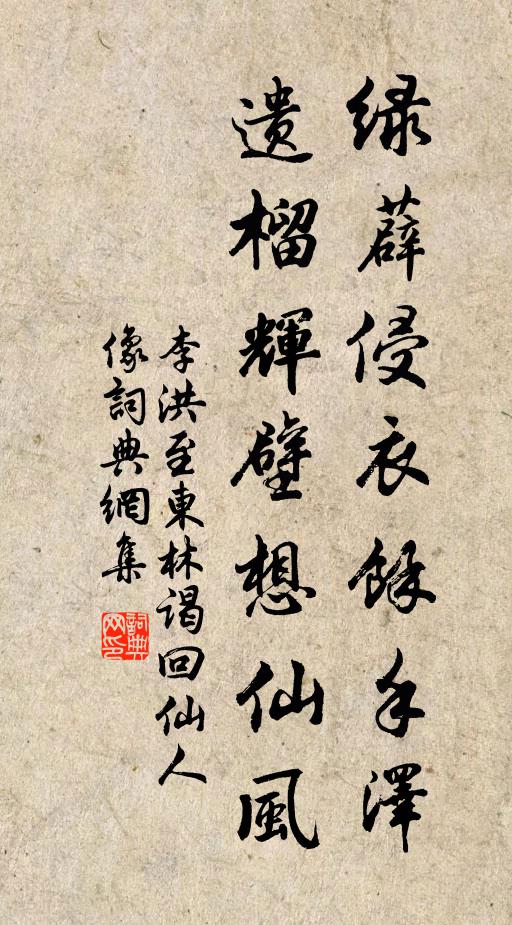 绿薜侵衣餘手澤
遗榴輝壁想仙風
李洪至東林谒回仙人
像詞典網集
詞典
网印